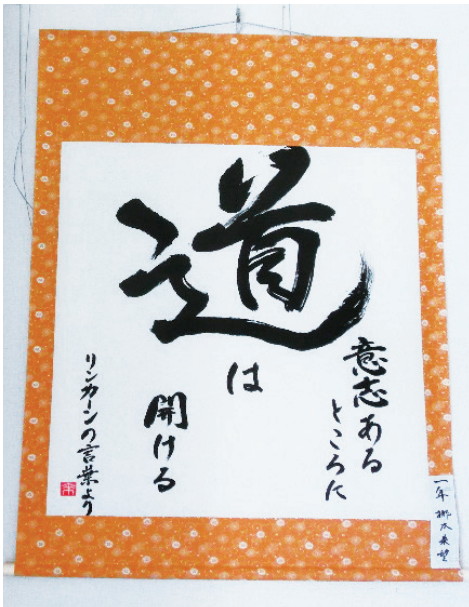 意志ある
ところに
道は
開ける
リンカーンの言葉より
一年